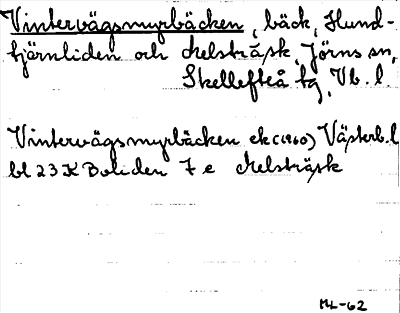 Vintervägsmyrbäcken, bäck, Hund-
tjärnliden och Melsträsk, Jörns sn,
Skellefteå tg, Vb. l.
Vintervägsmyrbäcken ek (1960) Västerb. l
bl 23 K Boliden 7 e Melsträsk
ML-62